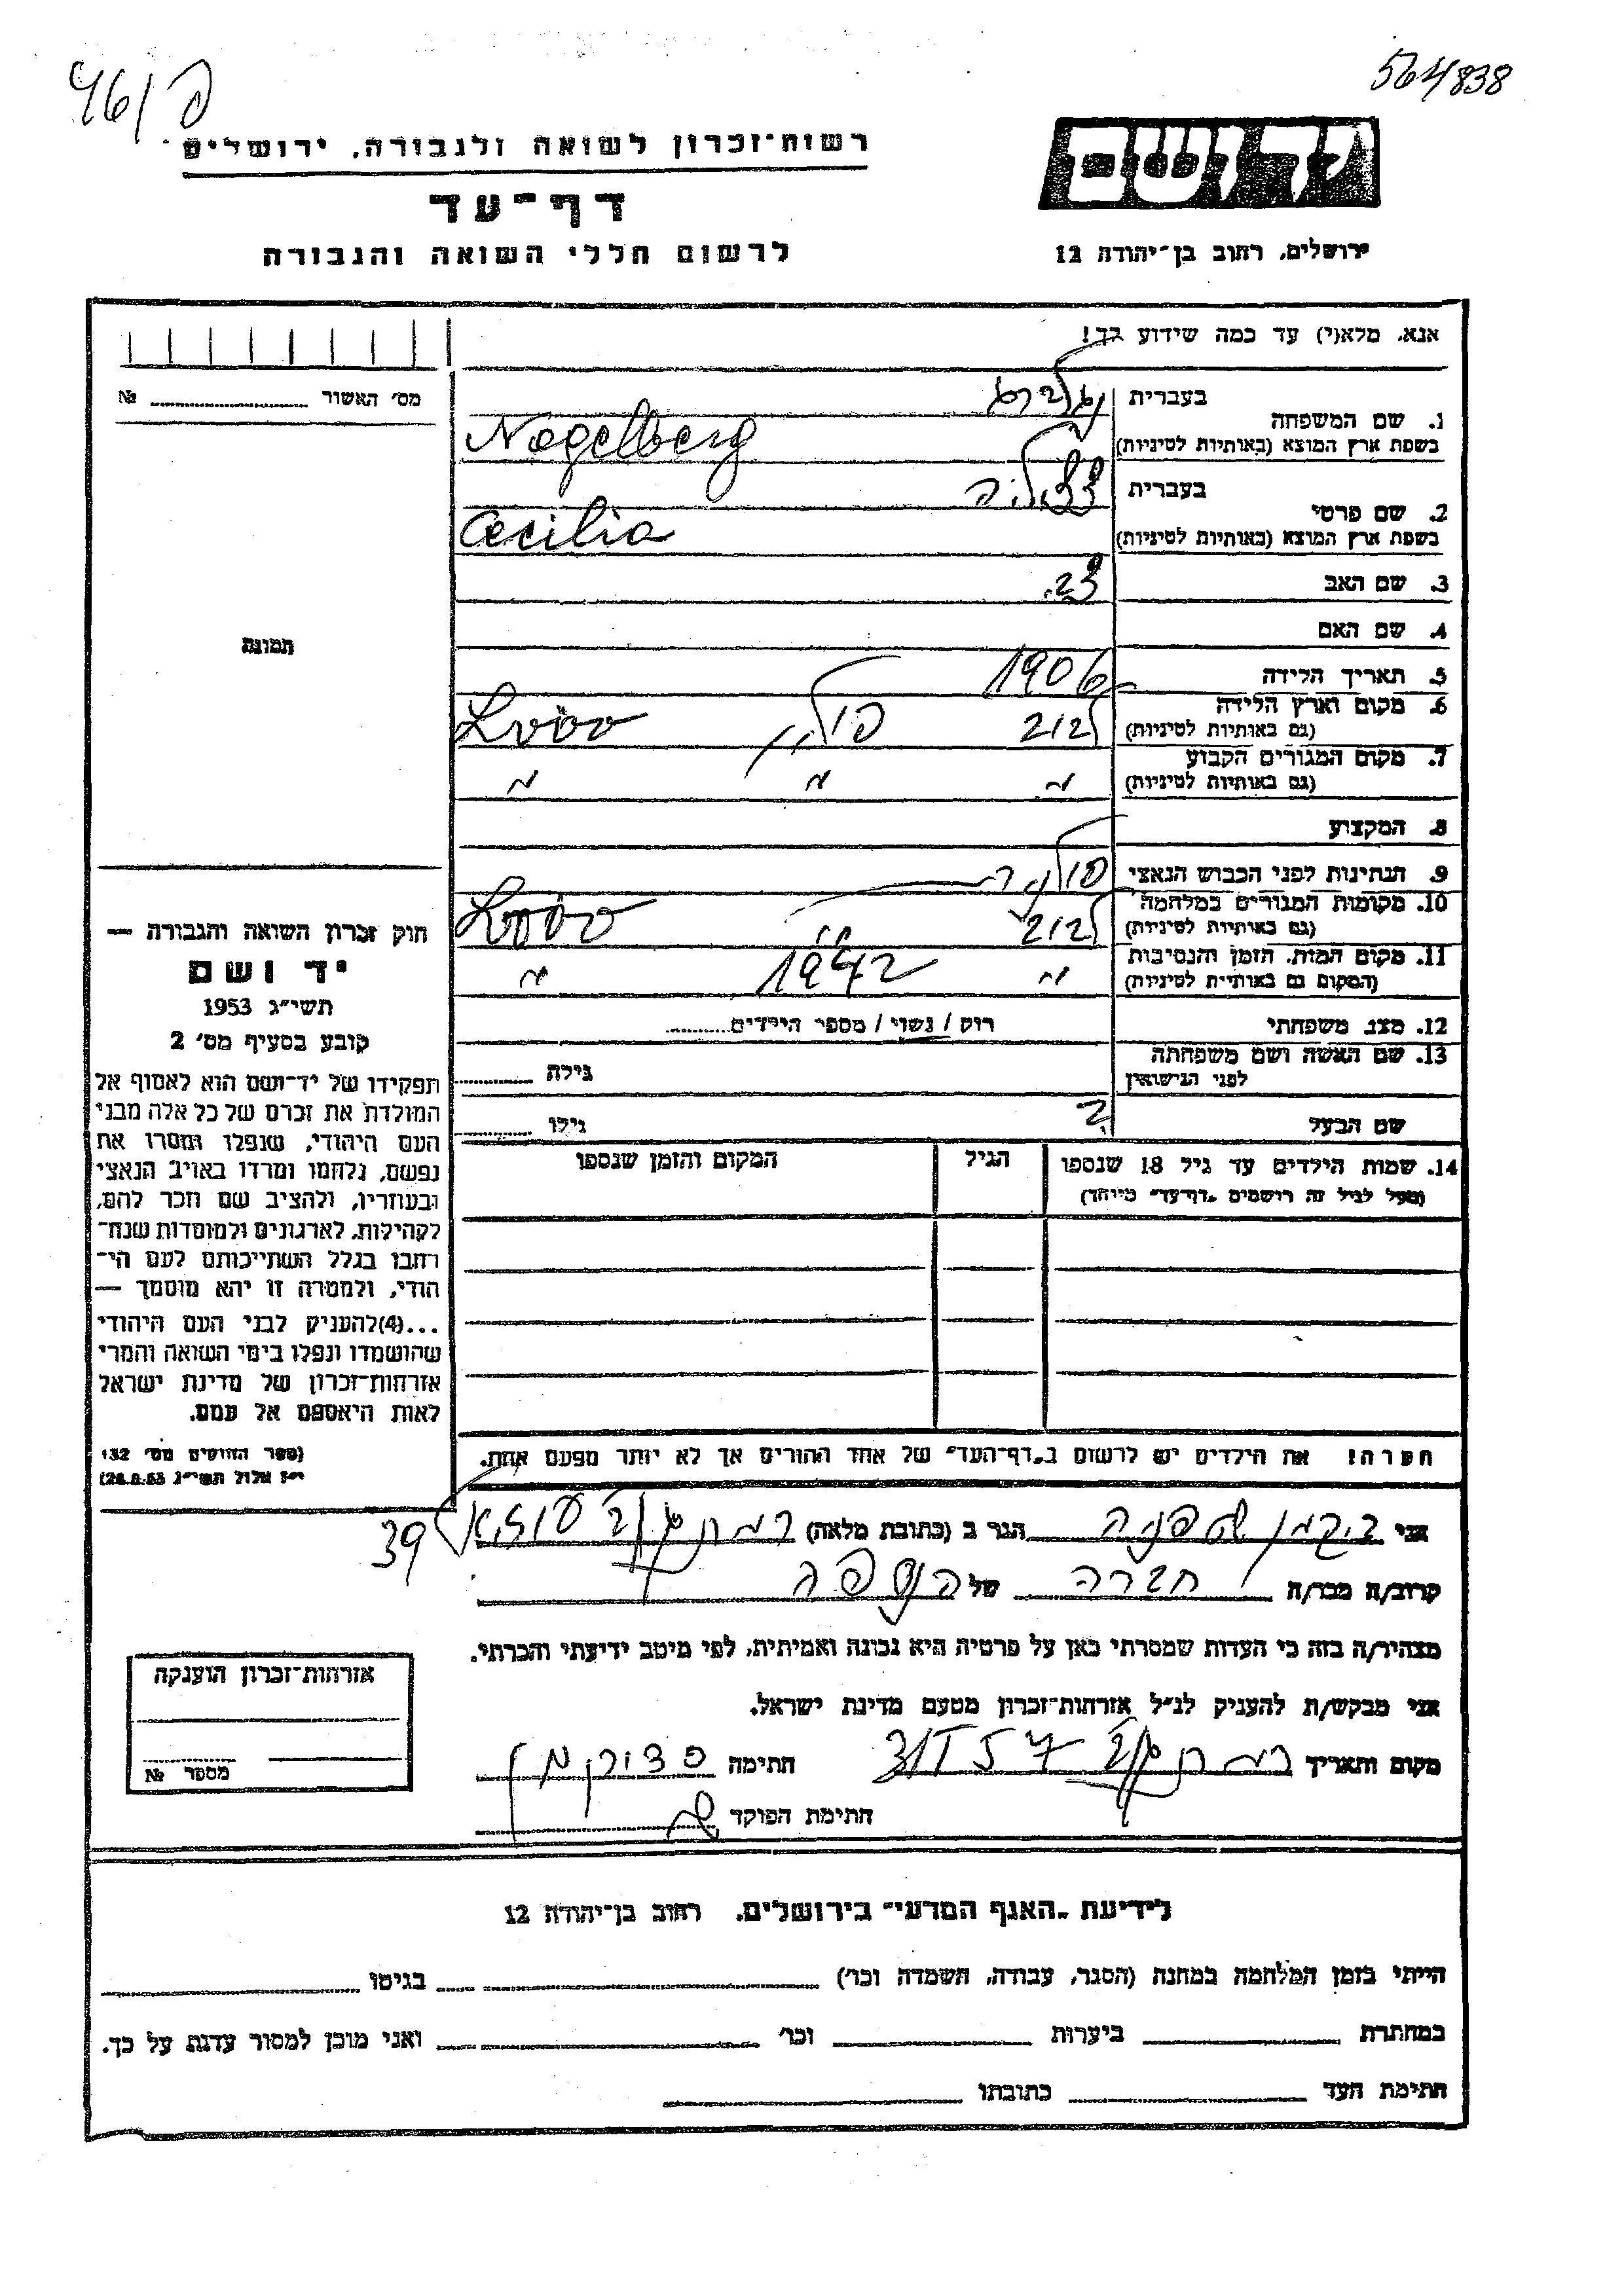 פ /461
564/838
רשות־זכרון לשואה ולגבורה, ירושלים
יד ושם
דף־עד
לרשום חללי השואה והגבורה
ירושלים, רחוב בן־יהודה 12
אנא, מלא(י) עד כמה שידוע לך!
מס׳ האשור № 
1. שם המשפחה
בעברית
בשפת ארץ המוצא (באותיות לטיניות)
Nagelberg
2. שם פרטי
בעברית
בשפת ארץ המוצא (באותיות לטיניות)
Cecilia
3. שם האב
4. שם האם
תמונה
5. תאריך הלידה 1906
6. מקום וארץ הלידה
(גם באותיות לטיניות) לבוב פולין Lwów
7. מקום המגורים הקבוע
(גם באותיות לטיניות) " " "
8. המקצוע
9. הנתינות לפני הכבוש הנאצי פולנית
10. מקומות המגורים במלחמה
(גם באותיות לטיניות) לבוב " Lwów
11. מקום המות, הזמן והנסיבות
(המקום גם באותיות לטיניות) " 1942 "
12. מצב משפחתי רווק / נשוי / מספר הילדים
13. שם האשה ושם משפחתה
לפני הנישואין גילה
שם הבעל ? גילו
14. שמות הילדים עד גיל 18 שנספו
(מעל לגיל זה רושמים „דף־עד״ מיוחד)
הגיל
המקום והזמן שנספו
חוק זכרון השואה והגבורה —
יד ושם
תשי״ג 1953
קובע בסעיף מס׳ 2
תפקידו של יד־ושם הוא לאסוף אל
המולדת את זכרם של כל אלה מבני
העם היהודי, שנפלו ומסרו את
נפשם, נלחמו ומרדו באויב הנאצי
ובעוזריו, ולהציב שם וזכר להם,
לקהילות, לארגונים ולמוסדות שנח־
רבו בגלל השתייכותם לעם הי־
הודי, ולמטרה זו יהא מוסמך —
...(4) להעניק לבני העם היהודי
שהושמדו ונפלו בימי השואה והמרי
אזרחות־זכרון של מדינת ישראל
לאות היאספם אל עמם.
(ספר החוקים מס׳ 132
י״ז אלול תשי״ג 28.8.53)
הערה! את הילדים יש לרשום ב„דף־העד״ של אחד ההורים אך לא יותר מפעם אחת.
אני הגר ב (כתובת מלאה) רמת גן 39
קרוב/ה מכר/ה חברה של הנספה
מצהיר/ה בזה כי העדות שמסרתי כאן על פרטיה היא נכונה ואמיתית, לפי מיטב ידיעתי והכרתי.
אני מבקש/ת להעניק לנ״ל אזרחות־זכרון מטעם מדינת ישראל.
מקום ותאריך רמת גן חתימה
חתימת הפוקד
אזרחות־זכרון הוענקה
מספר №
לידיעת „האגף המדעי״ בירושלים, רחוב בן־יהודה 12
הייתי בזמן המלחמה במחנה (הסגר, עבודה, השמדה וכו׳) בגיטו
במחתרת ביערות וכו׳ ואני מוכן למסור עדות על כך.
חתימת העד כתובתו